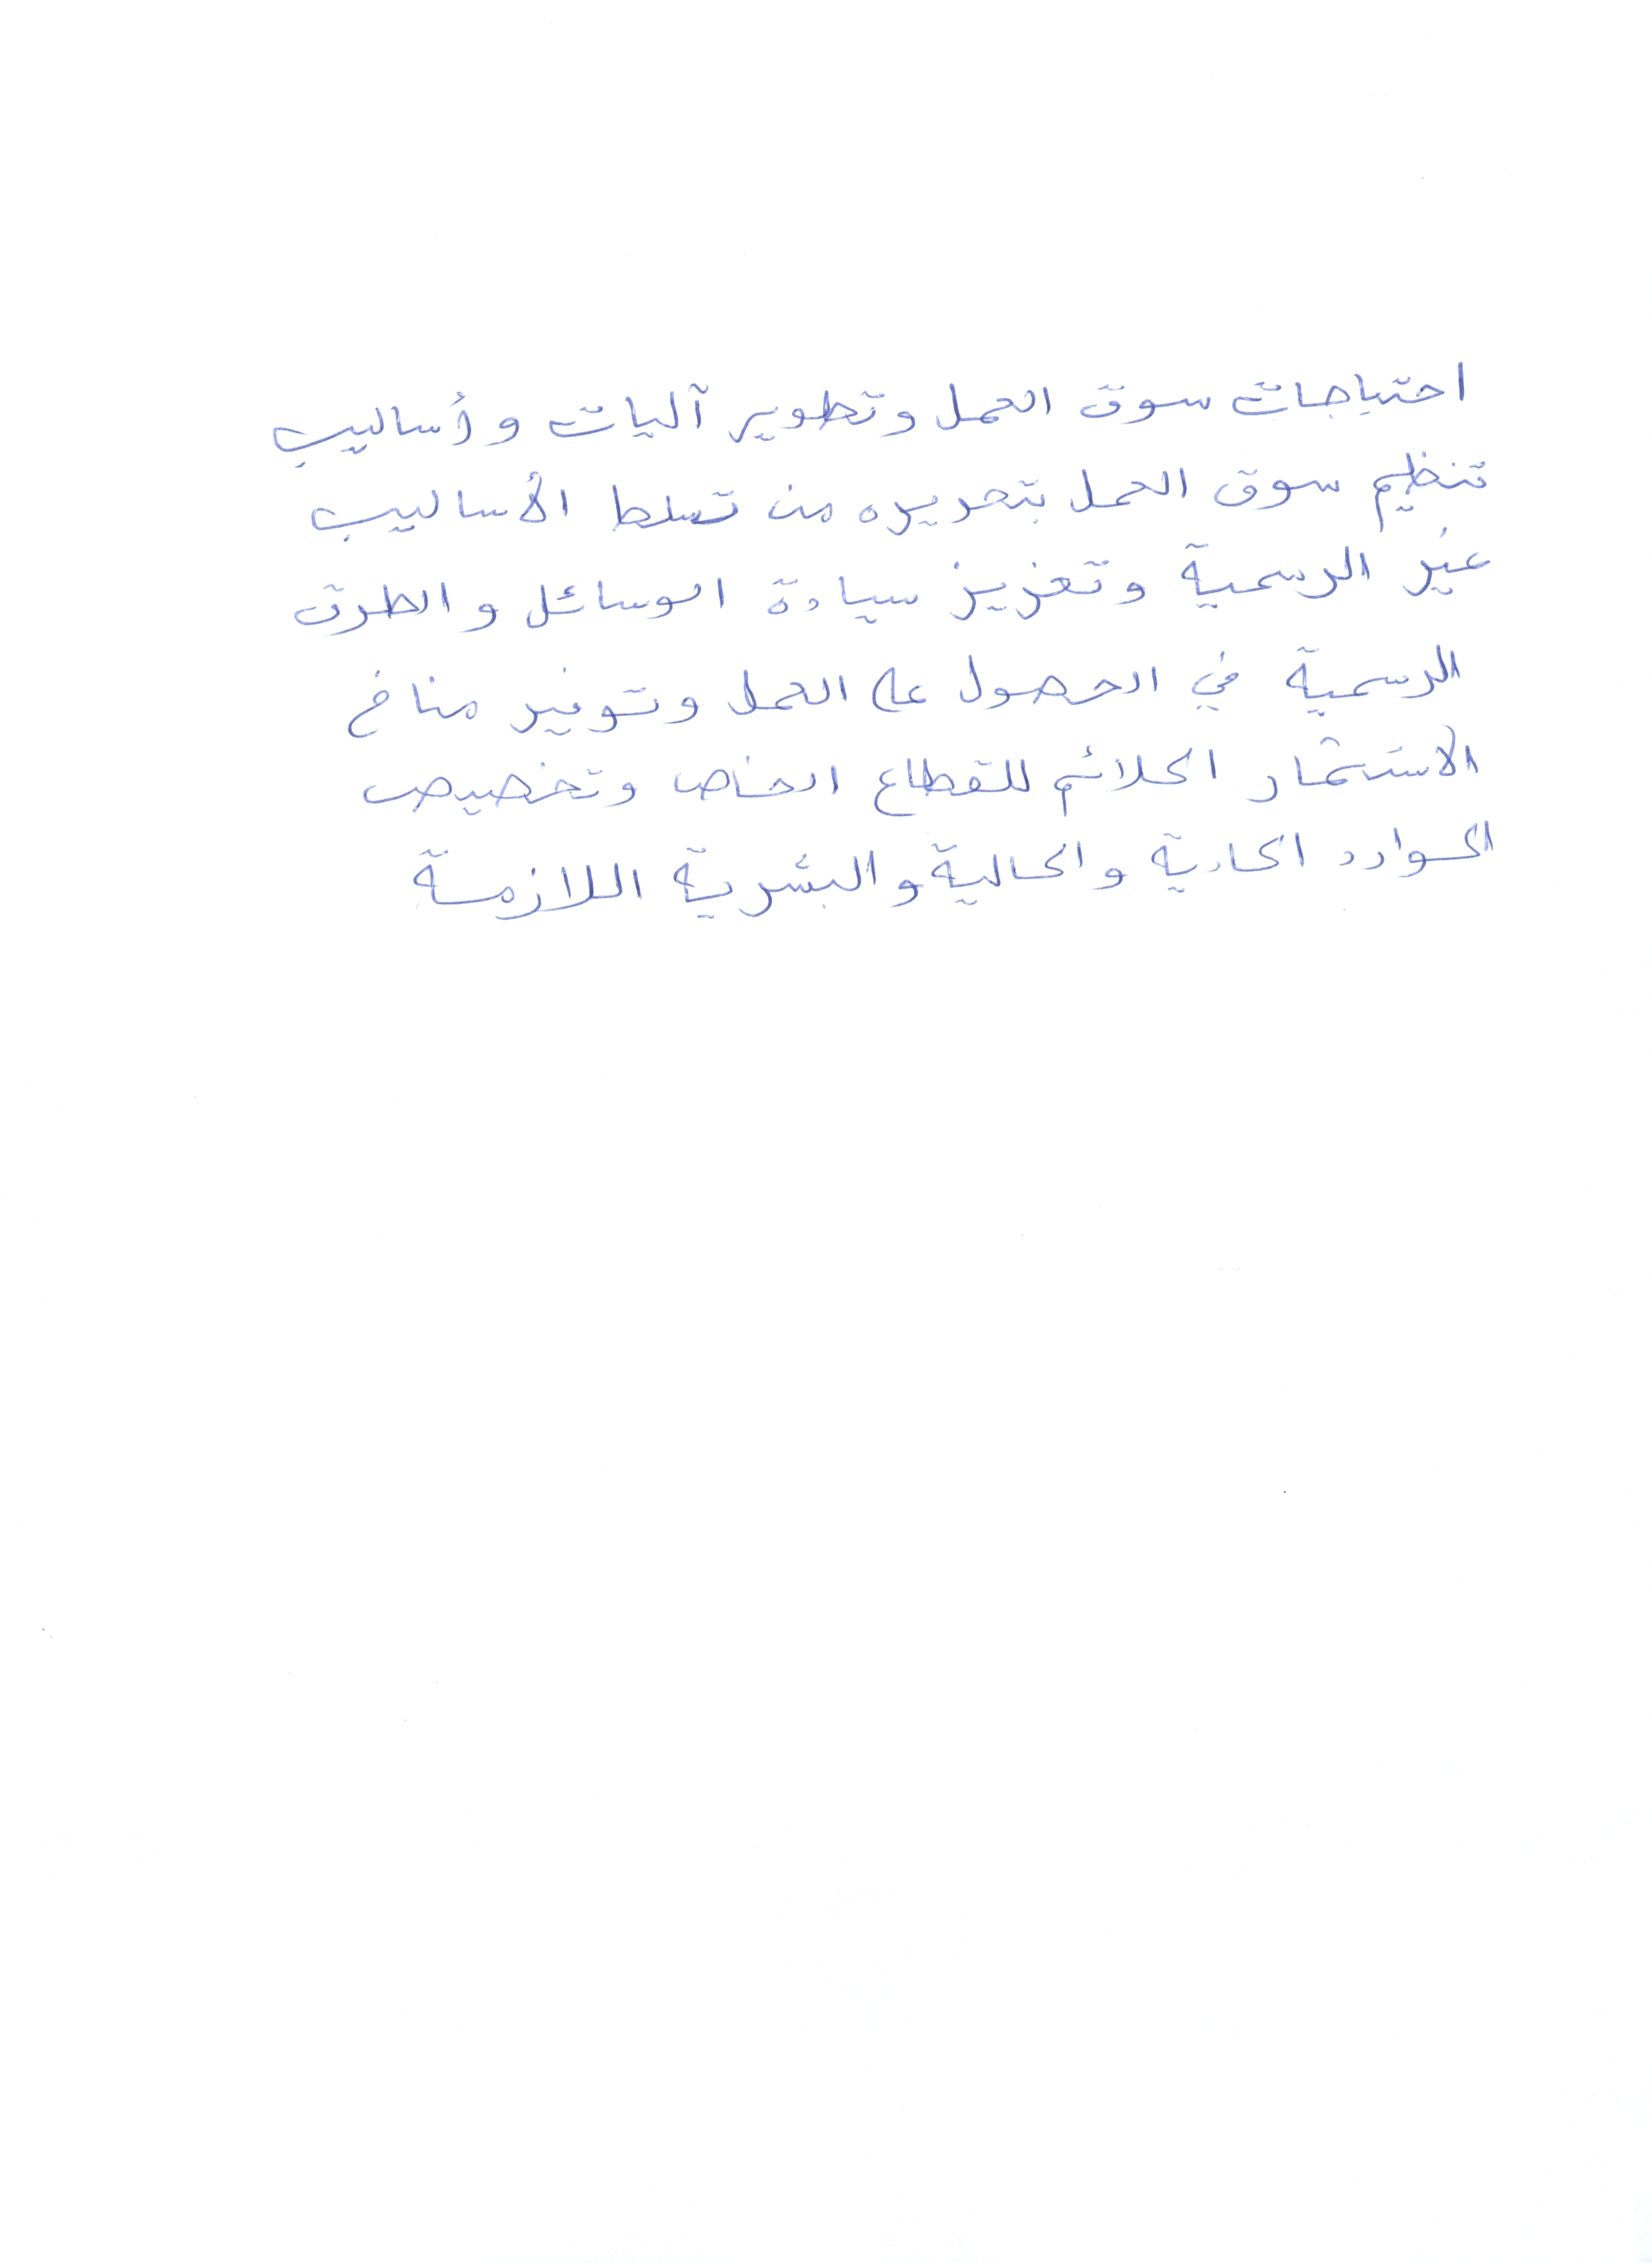 احتياجات سوق العمل وتطوير آليات وأساليب
تنظيم سوق العمل بتحريره من تسلط الأساليب
غير الرسمية وتعزيز سيادة الوسائل والطرق
الرسمية في الحصول على العمل وتوفير مناخ
الاستثمار الملائم للقطاع الخاص وتخصيص
الموارد المادية والمالية والبشرية اللازمة